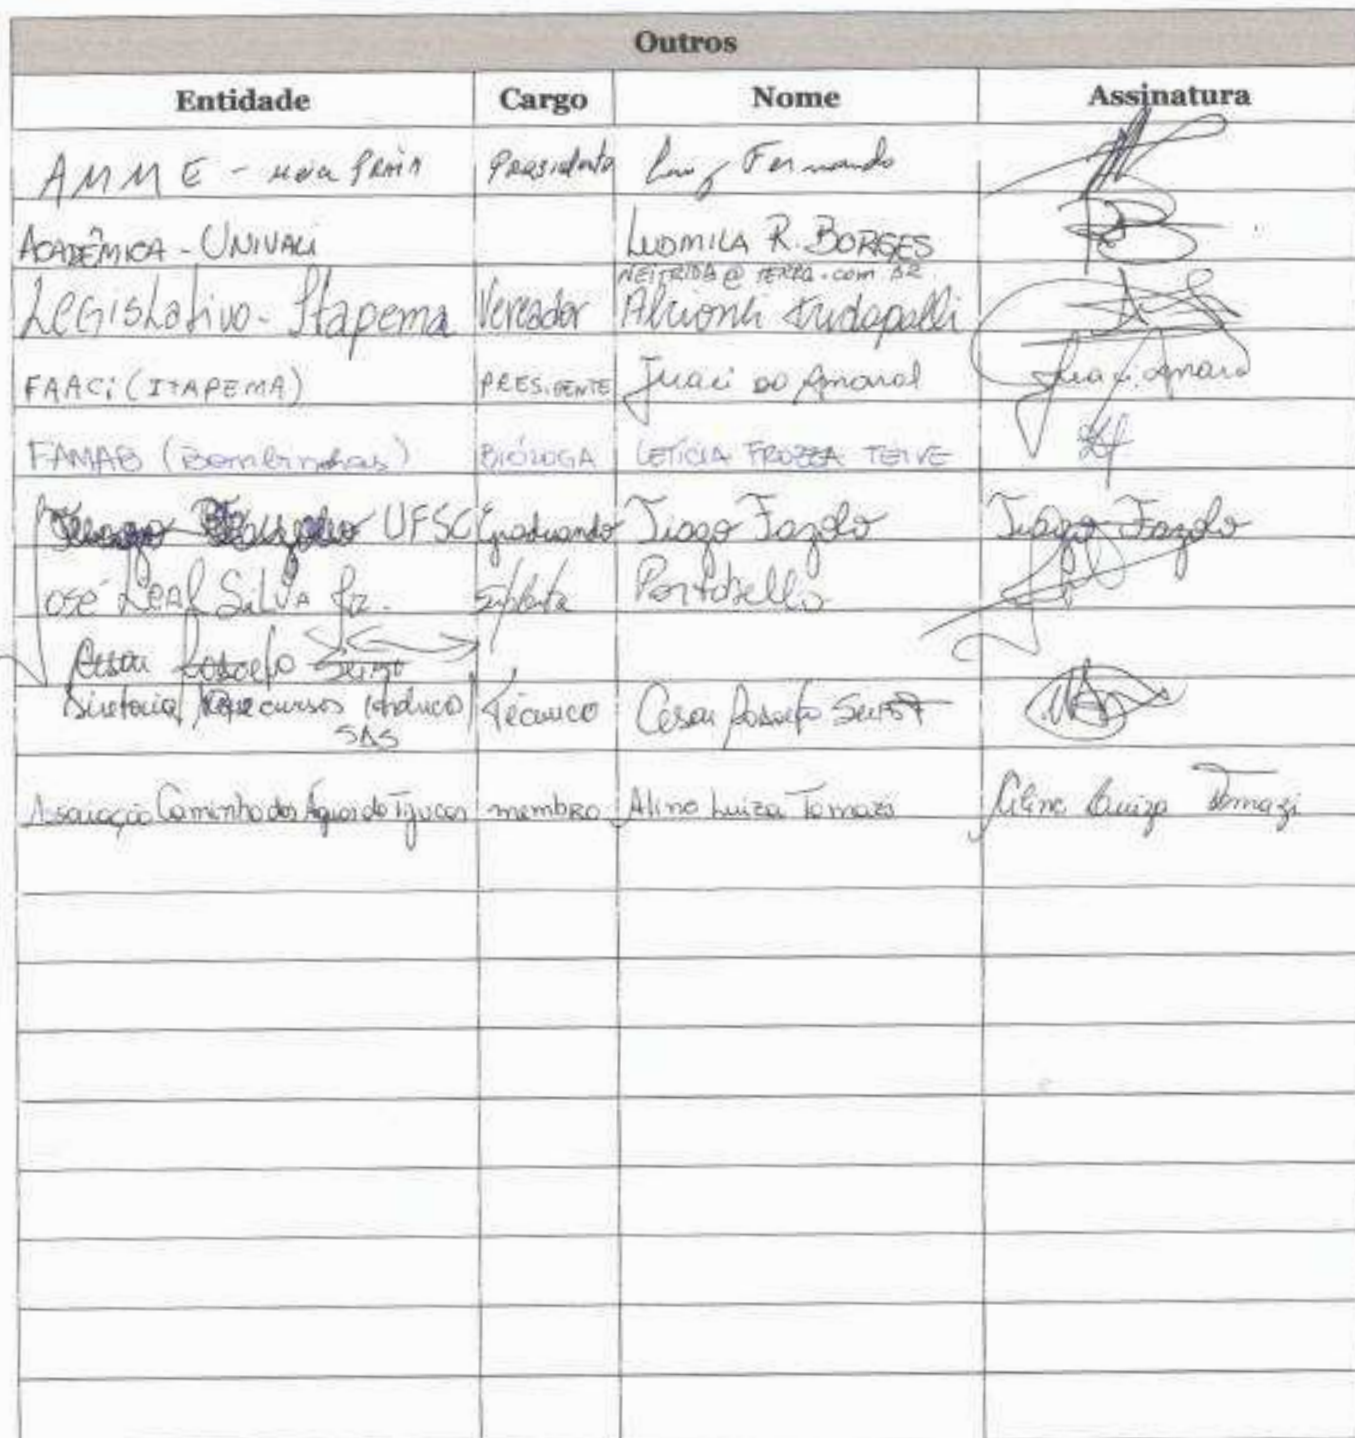 Outros
Entidade Cargo Nome Assinatura
AMME - Presidente Luiz Fernando
ACADÊMICA - UNIVALI LUDMILA R. BORGES
@ TERRA.com.BR
Legislativo - Itapema Vereador
FAACI (ITAPEMA) PRESIDENTE Juaci do Amaral Juaci Amaral
FAMAB (Bombinhas) BIÓLOGA LETÍCIA FROZZA TEIVE
UFSC Graduando Tiago Fazolo Tiago Fazolo
José Leal Silva Jr. Suplente Portobello
Cesar
Diretoria Recursos Técnico Cesar
Associação Caminho das Águas do Tijucas membro Aline Luiza Tomazi Aline Luiza Tomazi